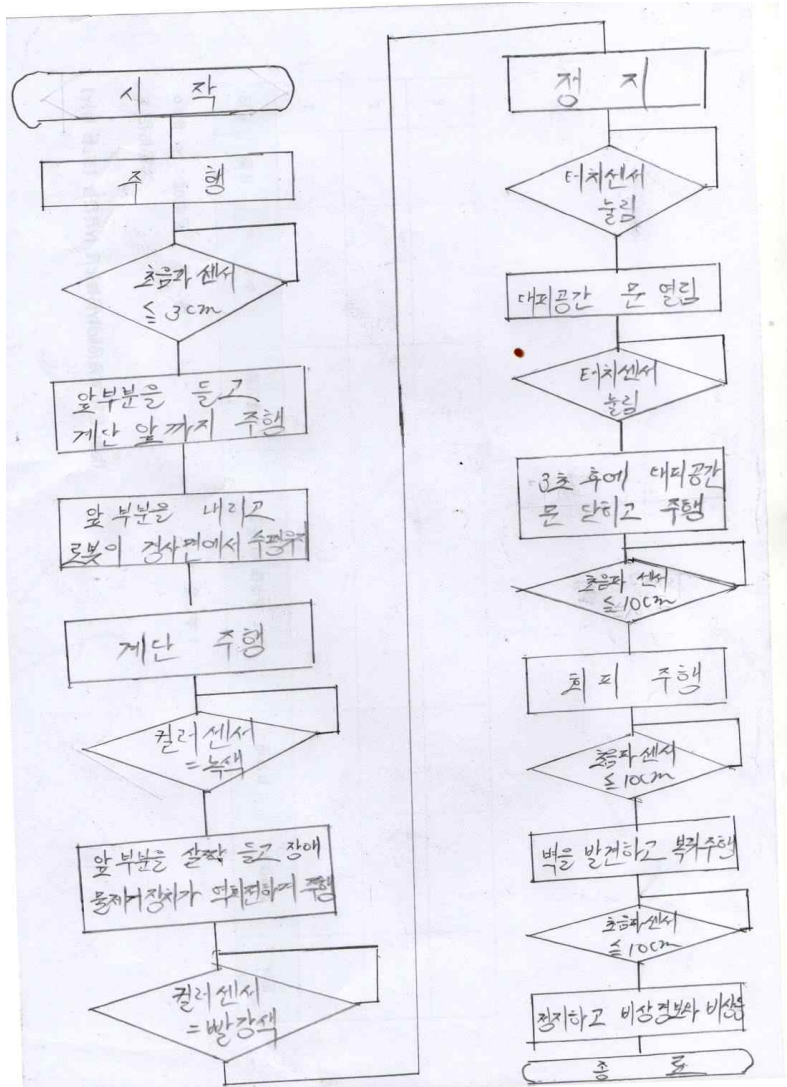 시 작
주 행
초음파 센서
≤ 3cm
앞부분을 들고
계단 앞까지 주행
앞 부분을 내리고
로봇이 경사면에서 수평유지
계단 주행
컬러센서
=녹색
앞 부분을 살짝 들고 장애
물제거장치가 역회전하며 주행
컬러센서
=빨강색
정 지
터치센서
눌림
대피공간 문 열림
터치센서
눌림
3초 후에 대피공간
문 닫히고 주행
초음파 센서
≤10cm
회 피 주행
초음파 센서
≤10cm
벽을 발견하고 복귀주행
초음파센서
≤10cm
정지하고 비상경보와 비상등
종 료